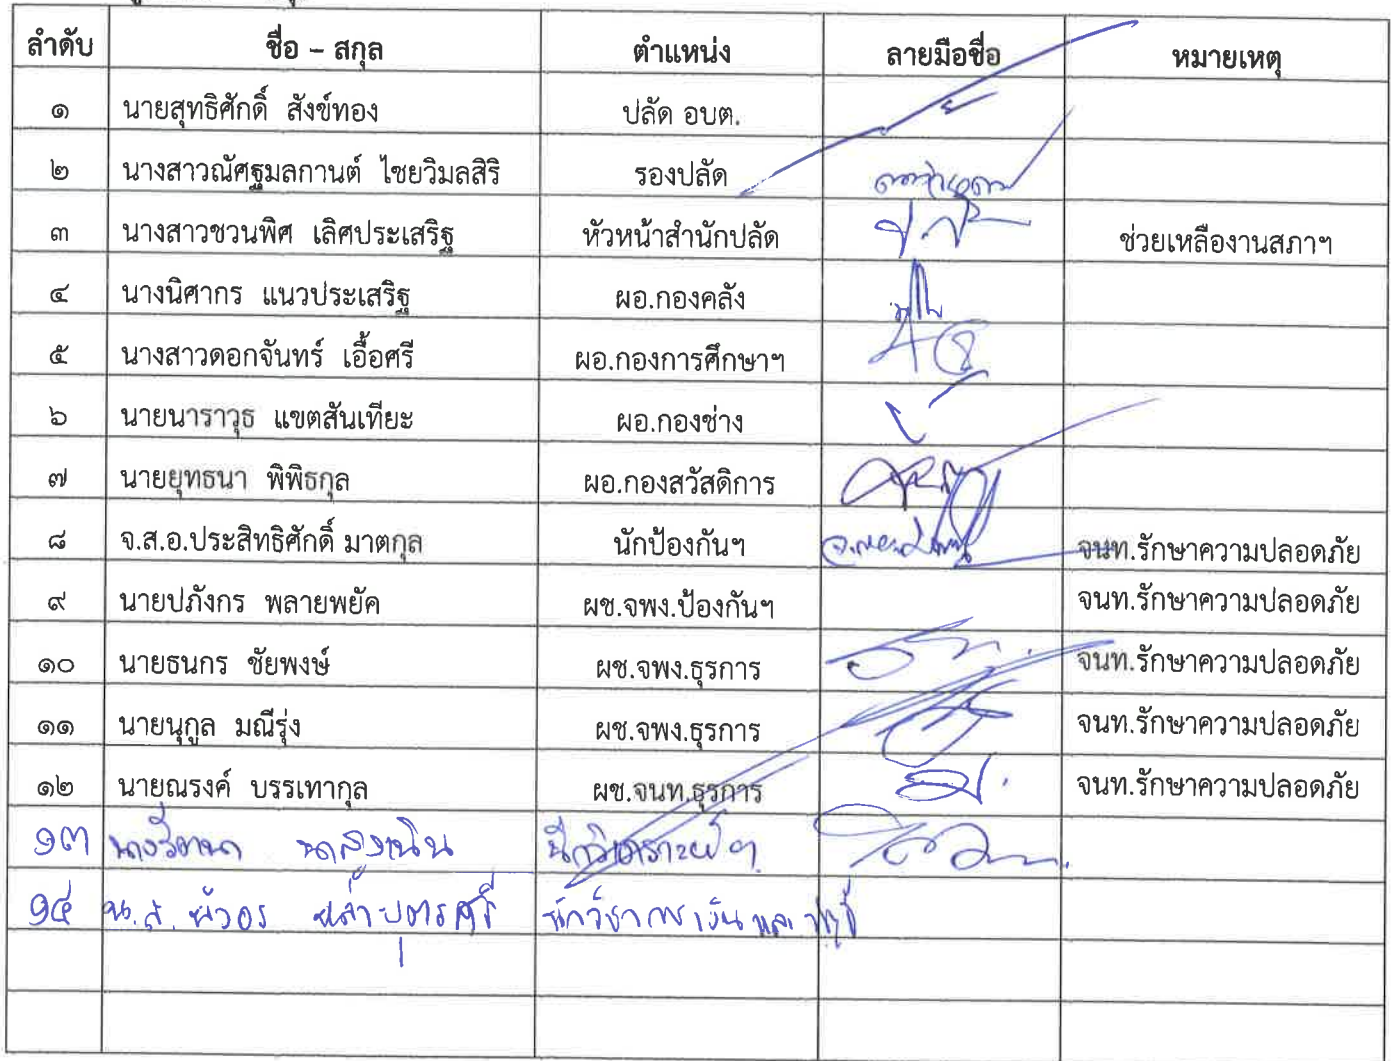 ลำดับ ชื่อ – สกุล ตำแหน่ง ลายมือชื่อ หมายเหตุ
๑ นายสุทธิศักดิ์ สังข์ทอง ปลัด อบต.
๒ นางสาวณัศฐมลกานต์ ไชยวิมลสิริ รองปลัด
๓ นางสาวชวนพิศ เลิศประเสริฐ หัวหน้าสำนักปลัด ช่วยเหลืองานสภาฯ
๔ นางนิศากร แนวประเสริฐ ผอ.กองคลัง
๕ นางสาวดอกจันทร์ เอื้อศรี ผอ.กองการศึกษาฯ
๖ นายนาราวุธ แขตสันเทียะ ผอ.กองช่าง
๗ นายยุทธนา พิพิธกุล ผอ.กองสวัสดิการ
๘ จ.ส.อ.ประสิทธิศักดิ์ มาตกุล นักป้องกันฯ จนท.รักษาความปลอดภัย
๙ นายปภังกร พลายพยัค ผช.จพง.ป้องกันฯ จนท.รักษาความปลอดภัย
๑๐ นายธนกร ชัยพงษ์ ผช.จพง.ธุรการ จนท.รักษาความปลอดภัย
๑๑ นายนุกูล มณีรุ่ง ผช.จพง.ธุรการ จนท.รักษาความปลอดภัย
๑๒ นายณรงค์ บรรเทากุล ผช.จนท.ธุรการ จนท.รักษาความปลอดภัย
๑๓ นักวิเคราะห์ฯ
๑๔ น.ส. นักวิชาการเงินและบัญชี